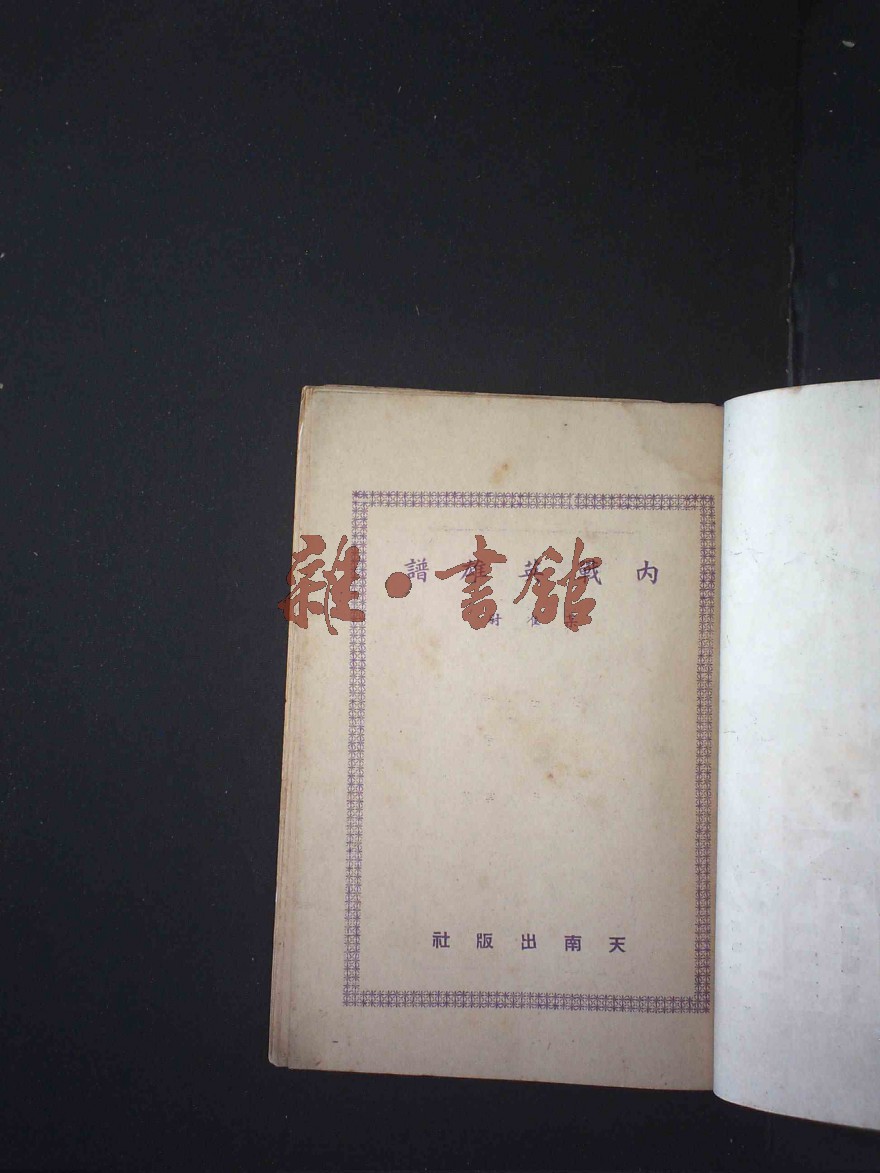 內戰英雄譜
雜·書館
天南出版社